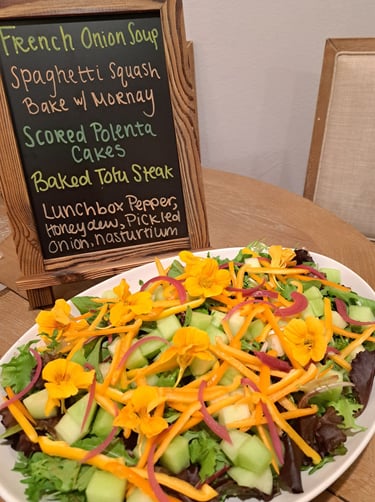 French Onion Soup
Spaghetti Squash
Bake w/ Mornay
Scored Polenta
Cakes
Baked Tofu Steak
Lunchbox Pepper,
Honeydew, Pickled
Onion, Nasturtium